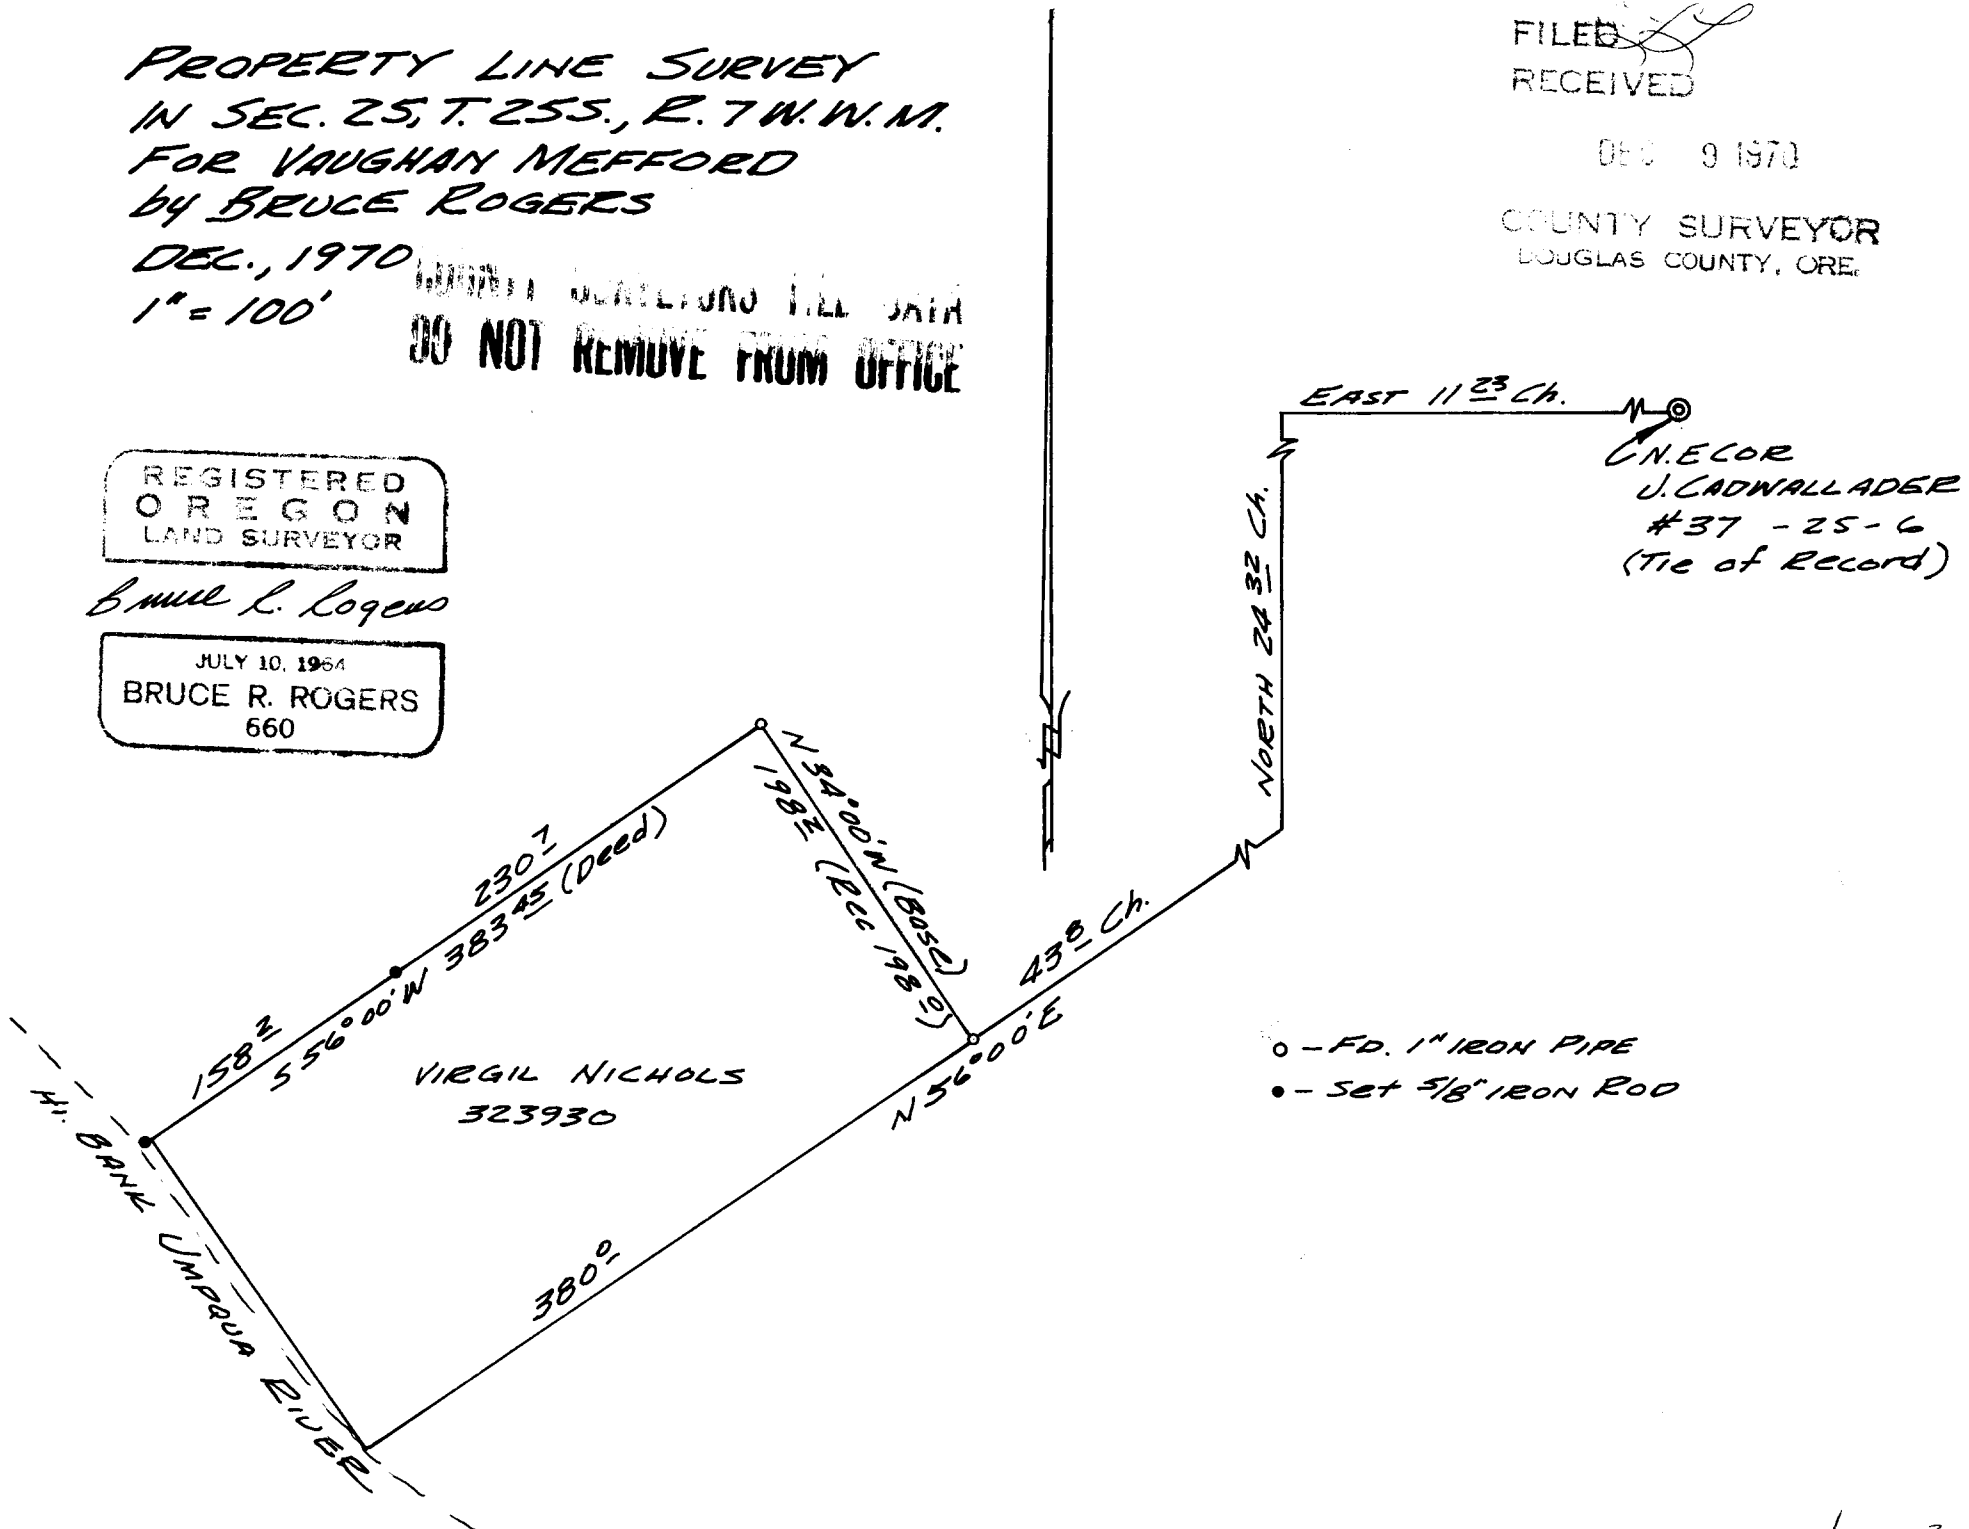 PROPERTY LINE SURVEY
IN SEC. 25, T. 25S., R. 7 W. W. M.
FOR VAUGHAN MEFFORD
by BRUCE ROGERS
DEC., 1970
1" = 100'
COUNTY SURVEYORS FILE DATA
DO NOT REMOVE FROM OFFICE
FILED
RECEIVED
DEC 9 1970
COUNTY SURVEYOR
DOUGLAS COUNTY, ORE.
REGISTERED
OREGON
LAND SURVEYOR
Bruce R. Rogers
JULY 10, 1964
BRUCE R. ROGERS
660
EAST 11 23 Ch.
N.E COR
J. CADWALLADER
#37 - 25 - 6
(Tie of Record)
NORTH 24 32 Ch.
N 34°00'W (Base)
198 2 (Rec 198 0)
230 7
S 56°00'W 383 45 (Deed)
158 2
43 8 Ch.
N 56°00'E
VIRGIL NICHOLS
323930
380 0
HI. BANK UMPQUA RIVER
N
○ - FD. 1" IRON PIPE
● - Set 5/8" IRON ROD